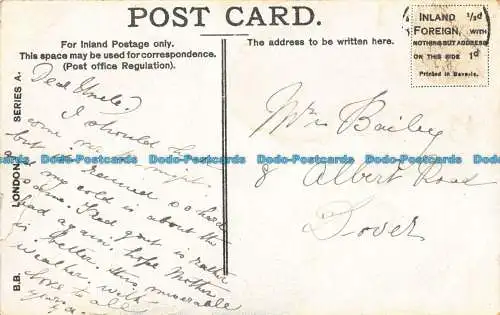 POST CARD.
For Inland Postage only.
This space may be used for correspondence.
(Post office Regulation).
The address to be written here.
INLAND ½d
FOREIGN, WITH
NOTHING BUT ADDRESS
ON THIS SIDE 1d
Printed in Bavaria.
B.B. LONDON SERIES A.
Dear Uncle?
I should have
come up to night
but it rained so hard
and my cold is about the
same. Dad gout is rather
bad again hope Mother
is better this miserable
weather. with
love to all
Mrs Bailey
8 Albert Road
Dover
Dodo-Postcards Dodo-Postcards Dodo-Postcards